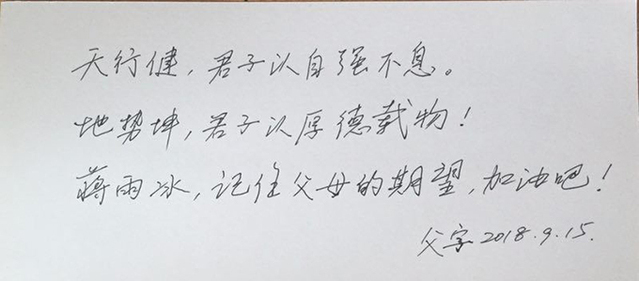 天行健，君子以自强不息。
地势坤，君子以厚德载物！
蒋雨冰，记住父母的期望，加油吧！
父字 2018.9.15.